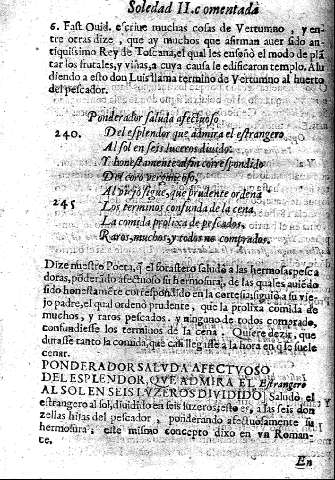 Soledad II. comentada
6. Fast. Ouid. escriue muchas cosas de Vertumno, y en-
tre otras dize, que ay muchos que afirman auer sido an-
tiquissimo Rey de Toscana, el qual les enseñò el modo de plã
tar los frutales, y viñas, a cuya causa le edificaron templo. Alu
diendo a esto don Luis llama termino de Vertumno al huerto
del pescador.
Ponderador saluda afectuoso
240. Del esplendor que admira el estrangero
Al sol en seis luceros diuido:
Y honestamente al fin correspondido
Del coro vergonçoso,
Al viejo sigue, que prudente ordena
245 Los terminos confunda de la cena
La comida prolixa de pescados,
Raros, muchos, y todos no comprados.
Dize nuestro Poeta, q̃ el forastero saludò a las hermosas pesca
doras, põderãdo afectuoso su hermosura, de las quales auiẽdo
sido honestamẽte correspondido en la cortesia, siguio a su vie
jo padre, el qual ordenò prudente, que la prolixa comida de
muchos, y raros pescados, y ninguno de todos comprado,
confundiesse los terminos de la cena. Quiere dezir, que
durasse tanto la comida, que casi llegasse a la hora en que suele
cenar.
PONDERADOR SALUDA AFECTVOSO
DEL ESPLENDOR, QVE ADMIRA EL Estrangero
AL SOL EN SEIS LVZEROS DIVIDIDO. Saludò el
estrangero al sol, diuidido en seis luzeros; esto es, a las seis don
zellas hijas del pescador, ponderando afectuosamente su
hermosura; este mismo concepto dixo en vn Roman-
te.
En